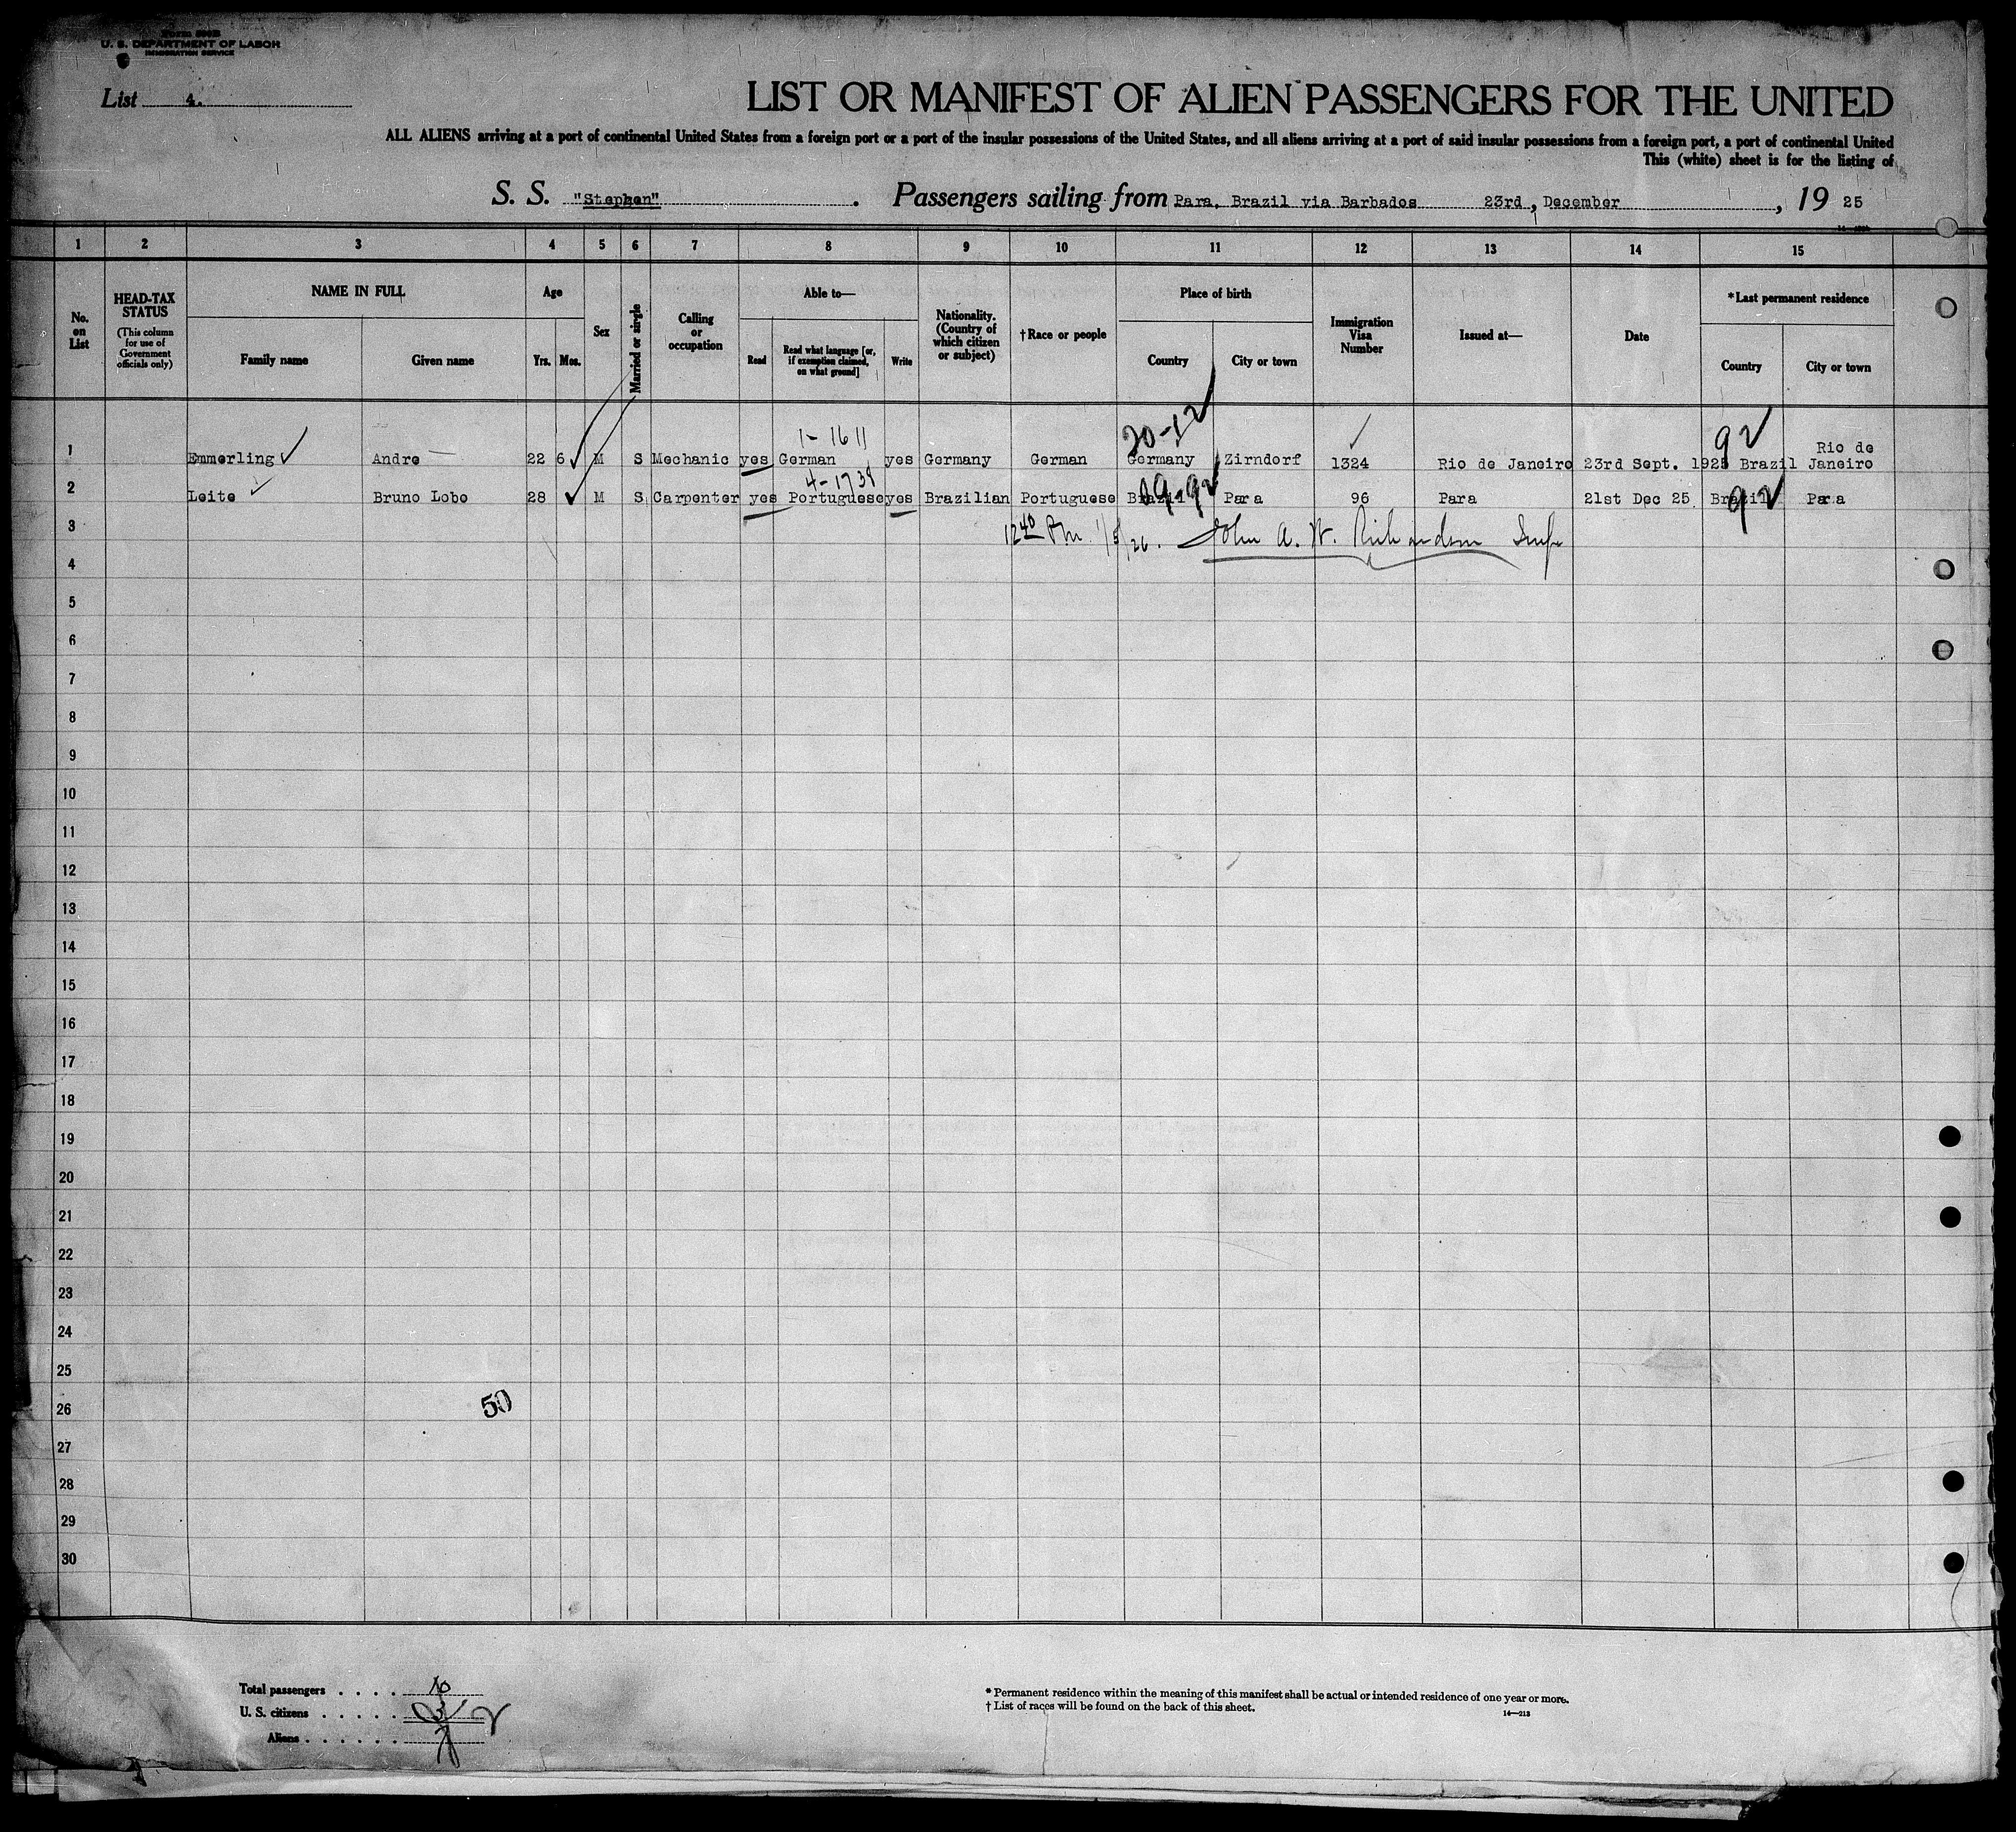 U. S. DEPARTMENT OF LABOR
IMMIGRATION SERVICE
List 4.
LIST OR MANIFEST OF ALIEN PASSENGERS FOR THE UNITED
ALL ALIENS arriving at a port of continental United States from a foreign port or a port of the insular possessions of the United States, and all aliens arriving at a port of said insular possessions from a foreign port, a port of continental United
This (white) sheet is for the listing of
S. S. "Stephen" . Passengers sailing from Para, Brazil via Barbados 23rd, December , 19 25
1 2 3 4 5 6 7 8 9 10 11 12 13 14 15
No. on List
HEAD-TAX STATUS
(This column for use of Government officials only)
NAME IN FULL
Family name Given name
Age
Yrs. Mos.
Sex
Married or single
Calling or occupation
Able to—
Read
Read what language [or, if exemption claimed, on what ground]
Write
Nationality. (Country of which citizen or subject)
†Race or people
Place of birth
Country City or town
Immigration Visa Number
Issued at—
Date
*Last permanent residence
Country City or town
20-12 92
1- 1611
1 Emmerling Andre 22 6 M S Mechanic yes German yes Germany German Germany Zirndorf 1324 Rio de Janeiro 23rd Sept. 1925 Brazil Rio de Janeiro
4-1738
2 Leite Bruno Lobo 28 M S Carpenter yes Portuguese yes Brazilian Portuguese Brazil Para 96 Para 21st Dec 25 Brazil Para
09-92 92
3 12 40 Pm. 1/5/26. John A. W. Richardson Insp
4
5
6
7
8
9
10
11
12
13
14
15
16
17
18
19
20
21
22
23
24
25
26
27
28
29
30
50
Total passengers . . . . 10
U. S. citizens . . . . . 3
Aliens . . . . . . 7
* Permanent residence within the meaning of this manifest shall be actual or intended residence of one year or more.
† List of races will be found on the back of this sheet.
14—213